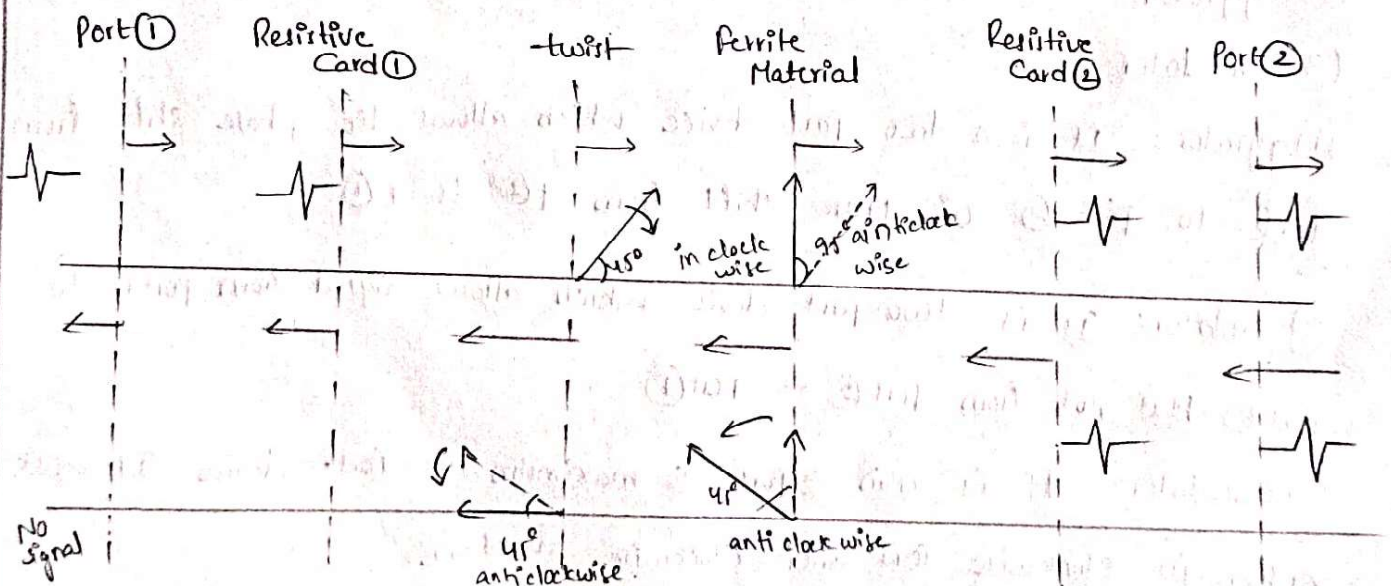 Port ①
Resistive Card ①
twist
ferrite Material
Resistive Card ②
Port ②
45°
in clock wise
anticlock wise
No signal
45°
anticlockwise
45°
anti clock wise